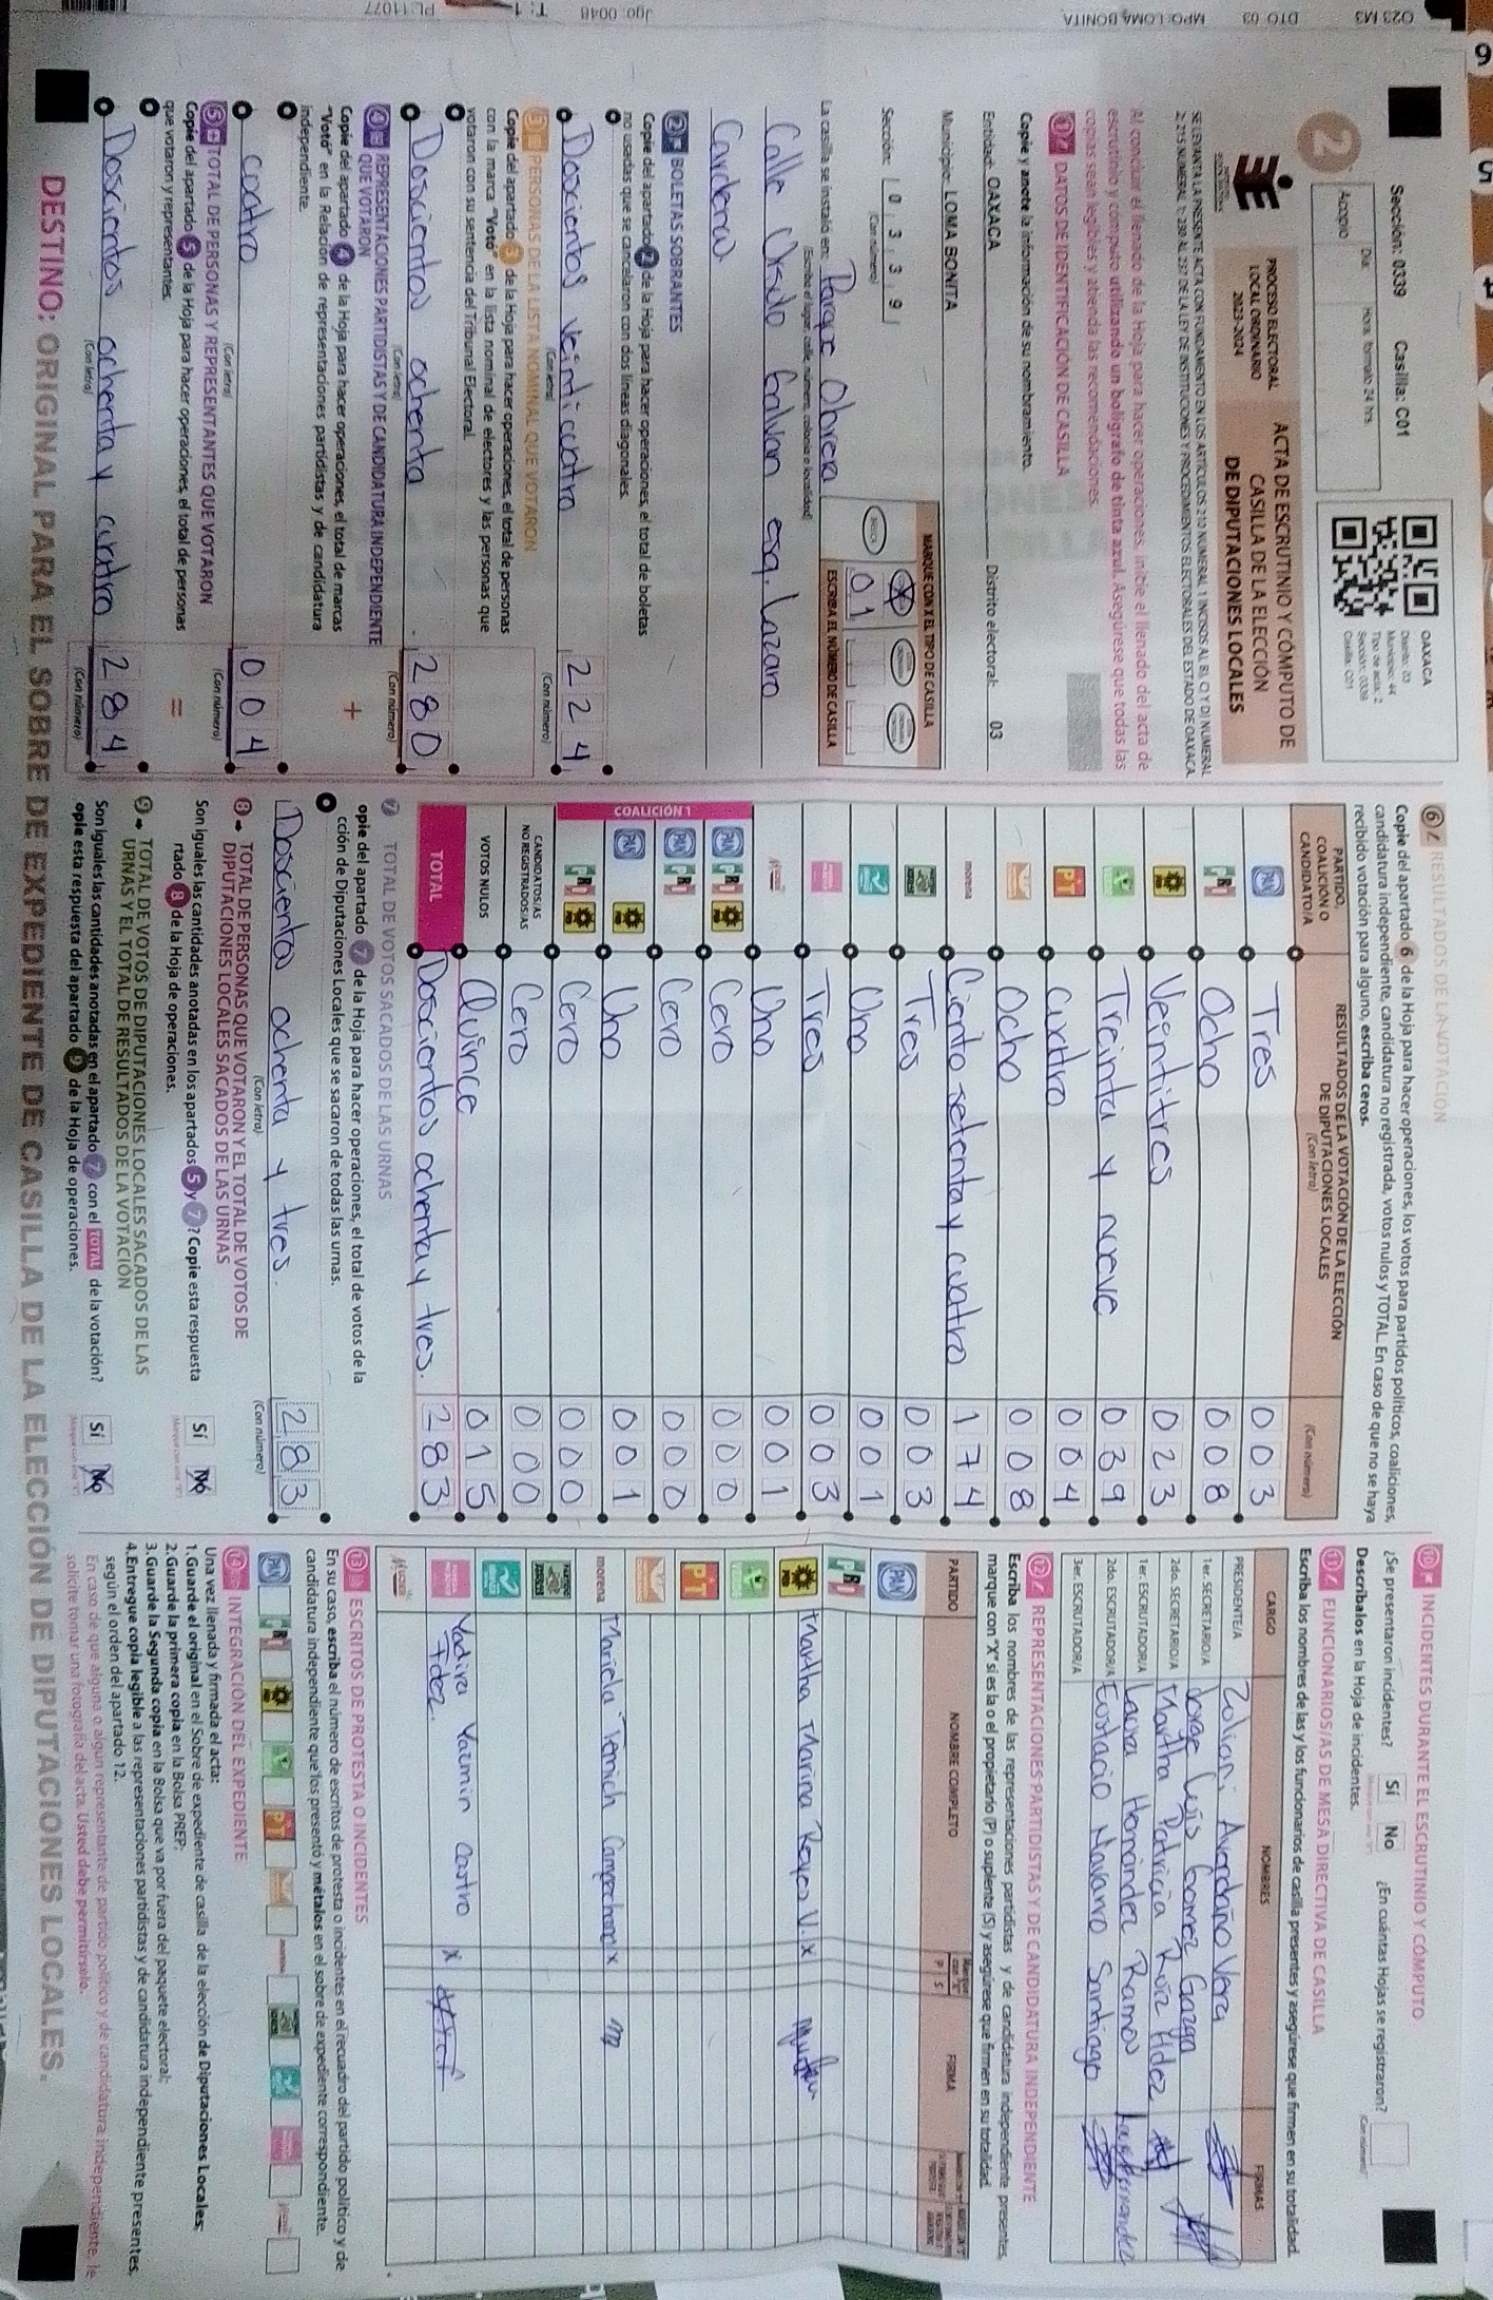 Sección: 0339 Casilla: C01
Día: Hora, formato 24 hrs.
Acopio
OAXACA
Distrito: 03
Municipio: 44
Tipo de acta: 2
Sección: 0339
Casilla: C01
2
PROCESO ELECTORAL
LOCAL ORDINARIO
2023-2024
ACTA DE ESCRUTINIO Y CÓMPUTO DE
CASILLA DE LA ELECCIÓN
DE DIPUTACIONES LOCALES
SE LEVANTA LA PRESENTE ACTA CON FUNDAMENTO EN LOS ARTÍCULOS 210 NUMERAL 1 INCISOS A), B), C) Y D) NUMERAL
2; 215 NUMERAL 1; 230 AL 237 DE LA LEY DE INSTITUCIONES Y PROCEDIMIENTOS ELECTORALES DEL ESTADO DE OAXACA.
Al concluir el llenado de la Hoja para hacer operaciones, inicie el llenado del acta de
escrutinio y cómputo utilizando un bolígrafo de tinta azul. Asegúrese que todas las
copias sean legibles y atienda las recomendaciones.
1 DATOS DE IDENTIFICACIÓN DE CASILLA
Copie y anote la información de su nombramiento.
Entidad: OAXACA Distrito electoral: 03
Municipio: LOMA BONITA
Sección: 0 3 3 9
(Con número)
MARQUE CON X EL TIPO DE CASILLA
BÁSICA
ESCRIBA EL NÚMERO DE CASILLA
01
La casilla se instaló en: Parque Obrera
(Escriba el lugar: calle, número, colonia o localidad)
Calle Ursulo Galvan esq. Lazaro
Cardenas
2 BOLETAS SOBRANTES
Copie del apartado 2 de la Hoja para hacer operaciones, el total de boletas
no usadas que se cancelaron con dos líneas diagonales.
Doscientos veinticuatro 224
(Con letra) (Con número)
3 PERSONAS DE LA LISTA NOMINAL QUE VOTARON
Copie del apartado 3 de la Hoja para hacer operaciones, el total de personas
con la marca "Votó" en la lista nominal de electores y las personas que
votaron con su sentencia del Tribunal Electoral.
Doscientos ochenta 280
(Con letra) (Con número)
4 REPRESENTACIONES PARTIDISTAS Y DE CANDIDATURA INDEPENDIENTE
QUE VOTARON
Copie del apartado 4 de la Hoja para hacer operaciones, el total de marcas
"Votó" en la Relación de representaciones partidistas y de candidatura
independiente.
+
cuatro 004
(Con letra) (Con número)
5 TOTAL DE PERSONAS Y REPRESENTANTES QUE VOTARON
Copie del apartado 5 de la Hoja para hacer operaciones, el total de personas
que votaron y representantes.
=
Doscientos ochenta y cuatro 284
(Con letra) (Con número)
6 RESULTADOS DE LA VOTACIÓN
Copie del apartado 6 de la Hoja para hacer operaciones, los votos para partidos políticos, coaliciones,
candidatura independiente, candidatura no registrada, votos nulos y TOTAL. En caso de que no se haya
recibido votación para alguno, escriba ceros.
PARTIDO, COALICIÓN O CANDIDATO/A
RESULTADOS DE LA VOTACIÓN DE LA ELECCIÓN
DE DIPUTACIONES LOCALES
(Con letra) (Con número)
PAN Tres 003
PRI Ocho 008
PRD Veintitres 023
Treinta y nueve 039
PT cuatro 004
Ocho 008
morena Ciento setenta y cuatro 174
Tres 003
Uno 001
Tres 003
Uno 001
COALICIÓN 1
PAN PRI PRD Cero 000
PAN PRI Cero 000
PAN PRD Uno 001
PRI PRD Cero 000
CANDIDATOS/AS NO REGISTRADOS/AS Cero 000
VOTOS NULOS Quince 015
TOTAL Doscientos ochenta y tres. 283
7 TOTAL DE VOTOS SACADOS DE LAS URNAS
opie del apartado 7 de la Hoja para hacer operaciones, el total de votos de la
cción de Diputaciones Locales que se sacaron de todas las urnas.
Doscientos ochenta y tres. 283
(Con letra) (Con número)
8 TOTAL DE PERSONAS QUE VOTARON Y EL TOTAL DE VOTOS DE
DIPUTACIONES LOCALES SACADOS DE LAS URNAS
Son iguales las cantidades anotadas en los apartados 5 y 7? Copie esta respuesta
rtado 8 de la Hoja de operaciones.
Sí No
9 TOTAL DE VOTOS DE DIPUTACIONES LOCALES SACADOS DE LAS
URNAS Y EL TOTAL DE RESULTADOS DE LA VOTACIÓN
Son iguales las cantidades anotadas en el apartado 7 con el TOTAL de la votación?
opie esta respuesta del apartado 9 de la Hoja de operaciones.
Sí No
10 INCIDENTES DURANTE EL ESCRUTINIO Y CÓMPUTO
¿Se presentaron incidentes? Sí No ¿En cuántas Hojas se registraron?
(Con número)
Descríbalos en la Hoja de incidentes.
11 FUNCIONARIOS/AS DE MESA DIRECTIVA DE CASILLA
Escriba los nombres de las y los funcionarios de casilla presentes y asegúrese que firmen en su totalidad.
CARGO NOMBRES FIRMAS
PRESIDENTE/A Avendaño Vera
1er. SECRETARIO/A Jorge Luis Gomez
2do. SECRETARIO/A Martha Patricia Ruiz Hdez
1er. ESCRUTADOR/A Laura Hernández Ramos
2do. ESCRUTADOR/A Eustacio Navarro Santiago
3er. ESCRUTADOR/A
12 REPRESENTACIONES PARTIDISTAS Y DE CANDIDATURA INDEPENDIENTE
Escriba los nombres de las representaciones partidistas y de candidatura independiente presentes,
marque con "X" si es la o el propietario (P) o suplente (S) y asegúrese que firmen en su totalidad.
PARTIDO NOMBRE COMPLETO P S FIRMA
PAN
PRI
PRD Martha Marina Reyes V. X
PT
morena Mariela Tenich Campechano X
Yadira Yazmin Castro X
Fdez.
13 ESCRITOS DE PROTESTA O INCIDENTES
En su caso, escriba el número de escritos de protesta o incidentes en el recuadro del partido político y de
candidatura independiente que los presentó y métalos en el sobre de expediente correspondiente.
PAN PRI PRD PT morena
14 INTEGRACIÓN DEL EXPEDIENTE
Una vez llenada y firmada el acta:
1.Guarde el original en el Sobre de expediente de casilla de la elección de Diputaciones Locales;
2.Guarde la primera copia en la Bolsa PREP;
3.Guarde la Segunda copia en la Bolsa que va por fuera del paquete electoral;
4.Entregue copia legible a las representaciones partidistas y de candidatura independiente presentes,
según el orden del apartado 12.
En caso de que alguna o algún representante de partido político y de candidatura independiente, le
solicite tomar una fotografía del acta, Usted debe permitírselo.
DESTINO: ORIGINAL PARA EL SOBRE DE EXPEDIENTE DE CASILLA DE LA ELECCIÓN DE DIPUTACIONES LOCALES.
O23 M3 DTO 03 MPO: LOMA BONITA Jgo: 0048 T: 1 PL: 11077
6
5